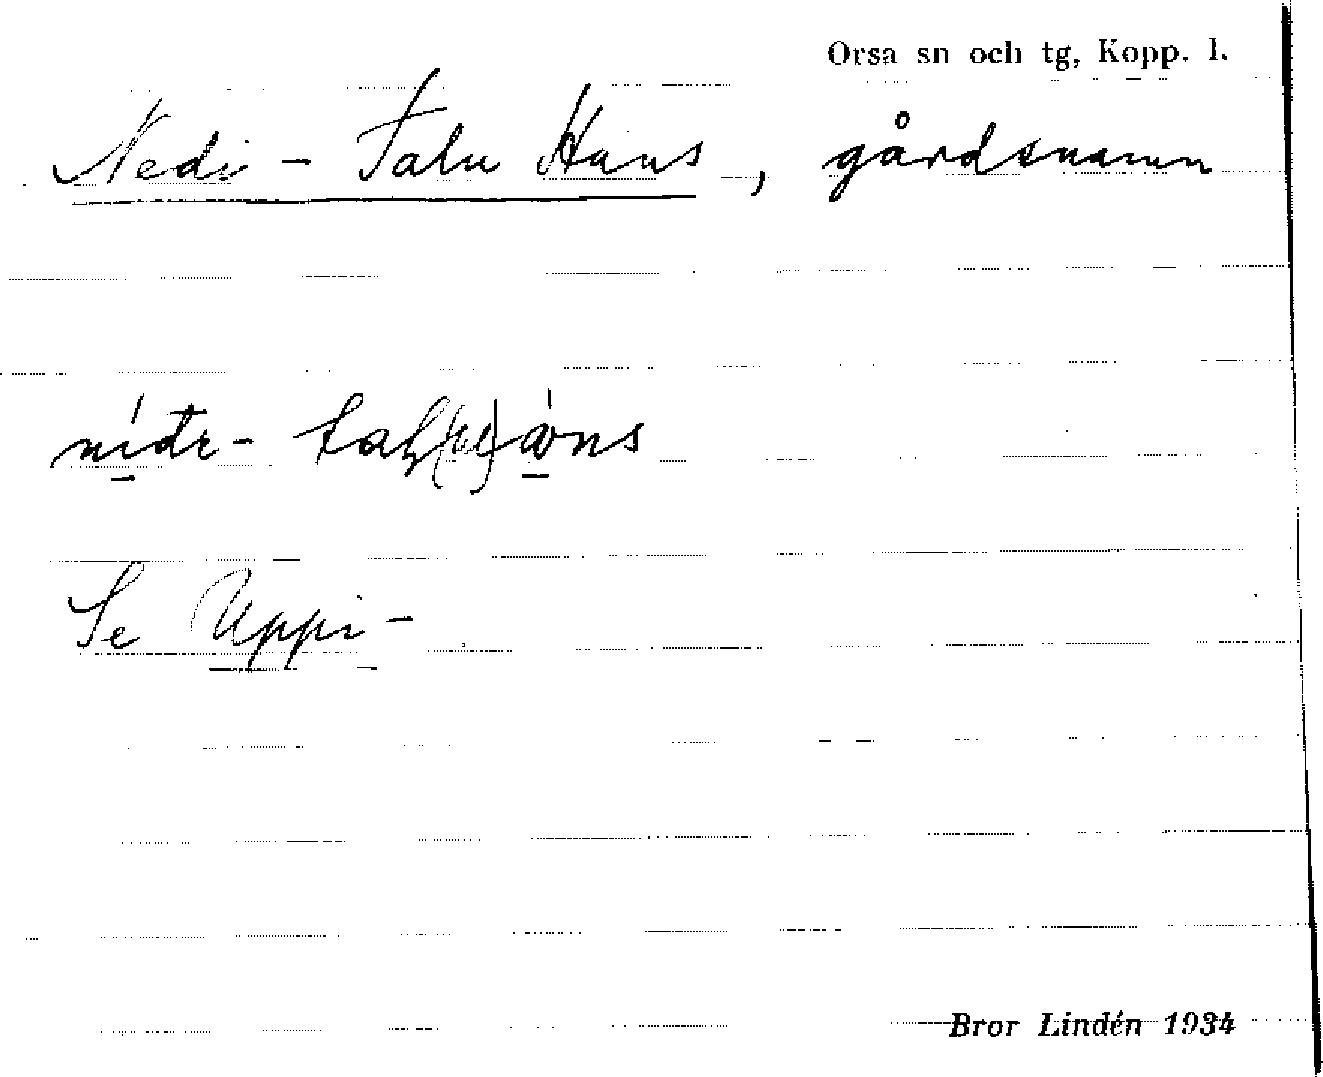 Orsa sn och tg, Kopp. l.
Nedi - Talu Hans, gårdsnamn
Se Uppi -
Bror Lindén 1934